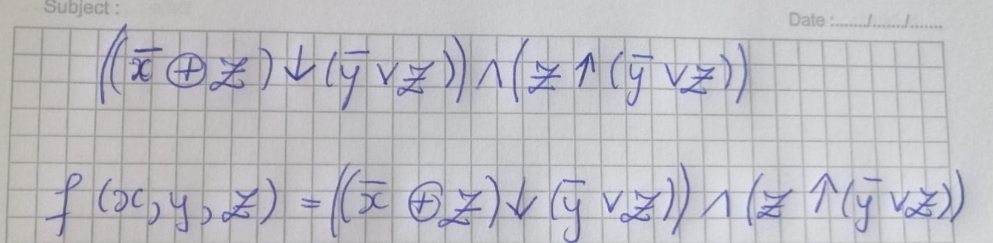 Subject :
Date :....../....../......
((x̄ ⊕ z) ↓ (ȳ ∨ z)) ∧ (z ↑ (ȳ ∨ z))
f (x, y, z) = ((x̄ ⊕ z) ↓ (ȳ ∨ z)) ∧ (z ↑ (ȳ ∨ z))